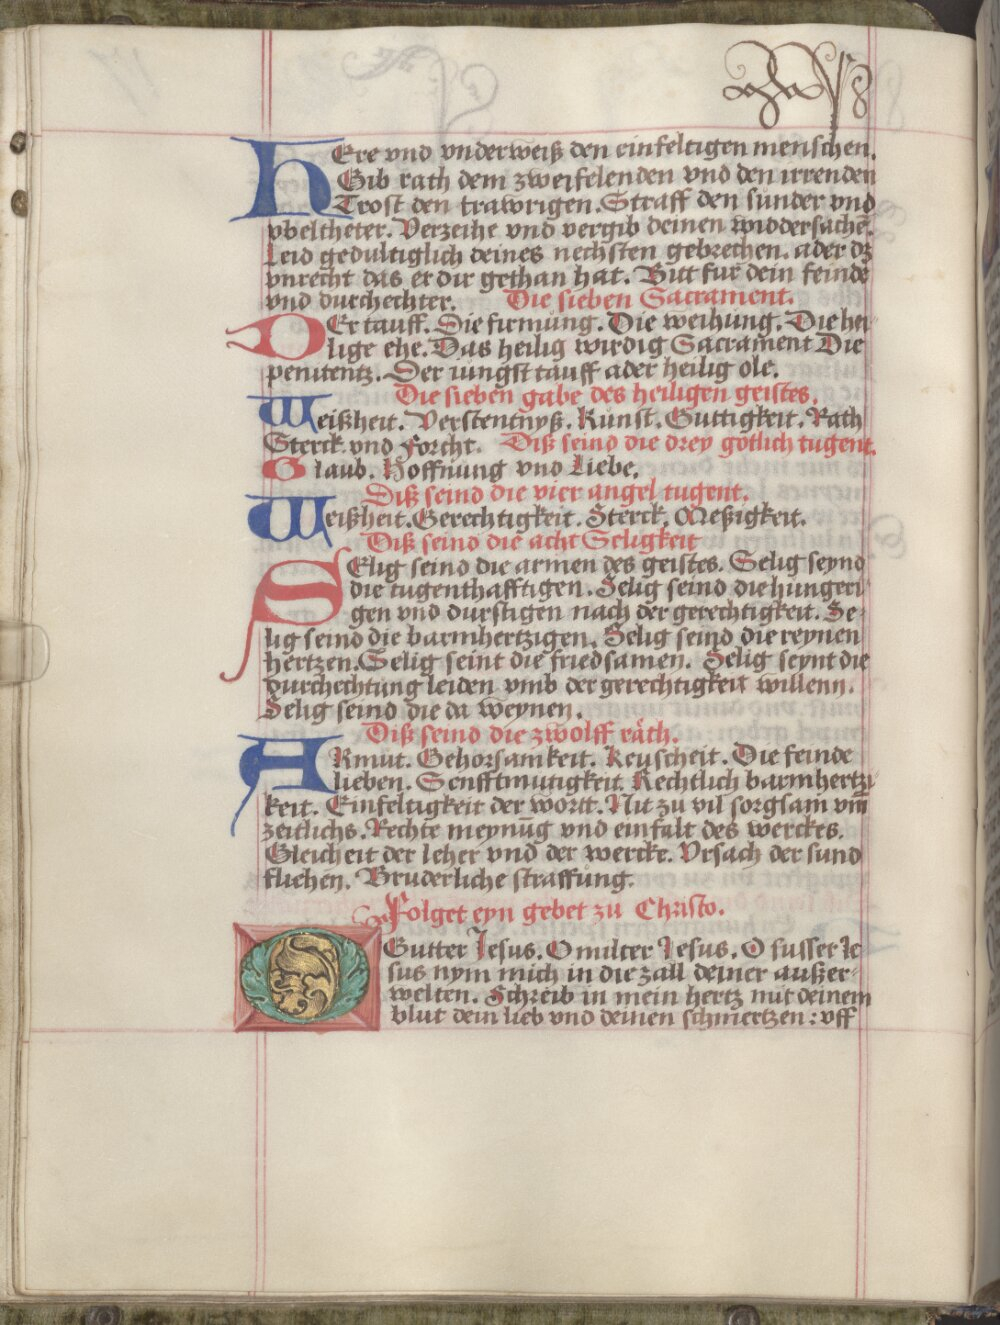 hEre vnd vnderweiß den einfeltigen menschen.
Gib rath dem zweifelenden vnd den irrenden
Trost den trawrigen. Straff den sunder vnd
vbeltheter. Verzeihe vnd vergib deinen widdersachē.
Leid gedultiglich deines nechsten gebrechen. ader dz
vnrecht das er dir gethan hat. Bitt fur dein feinde
vnd durchechter. Die sieben Sacrament.
DEr tauff. Die firmung. Die weihung. Die hei-
lige ehe. Das heilig wirdig Sacrament Die
penitentz. Der iungst tauff ader heilig ole.
Die sieben gabe des heiligen geistes.
Weißheit. Verstentnyß. Kunst. Guttigkeit. Rath
Sterck. vnd Forcht. Diß seind die drey gotlich tugent.
Glaub. Hoffnung vnd Liebe.
Diß seind die vier angel tugent.
Weißheit. Gerechtigkeit. Sterck. Meßigkeit.
Diß seind die acht Seligkeit
SElig seind die armen des geistes. Selig seynd
die tugenthafftigen. Selig seind die hungeri-
gen vnd durstigen nach der gerechtigkeit. Se-
lig seind die barmhertzigen. Selig seind die reynen
hertzen. Selig seint die friedsamen. Selig seynt die
durchechtung leiden vmb der gerechtigkeit willenn.
Selig seind die da weynen.
Diß seind die zwolff räth.
ARmut. Gehorsamkeit. Keuscheit. Die feinde
lieben. Senfftmutigkeit. Rechtlich barmhertzi-
keit. Einfeltigkeit der wortt. Nit zu vil sorgsam vm̄
zeitlichs. Rechte meynūg vnd einfalt des werckes.
Gleicheit der leher vnd der wercke. Vrsach der sund
fliehen. Bruderliche straffung.
Folget eyn gebet zu Christo.
O Gutter Jesus. O milter Jesus. O susser Je-
sus nym mich in die zall deiner außer-
welten. Schreib in mein hertz mit deinem
blut dein lieb vnd deinen schmertzen: vff